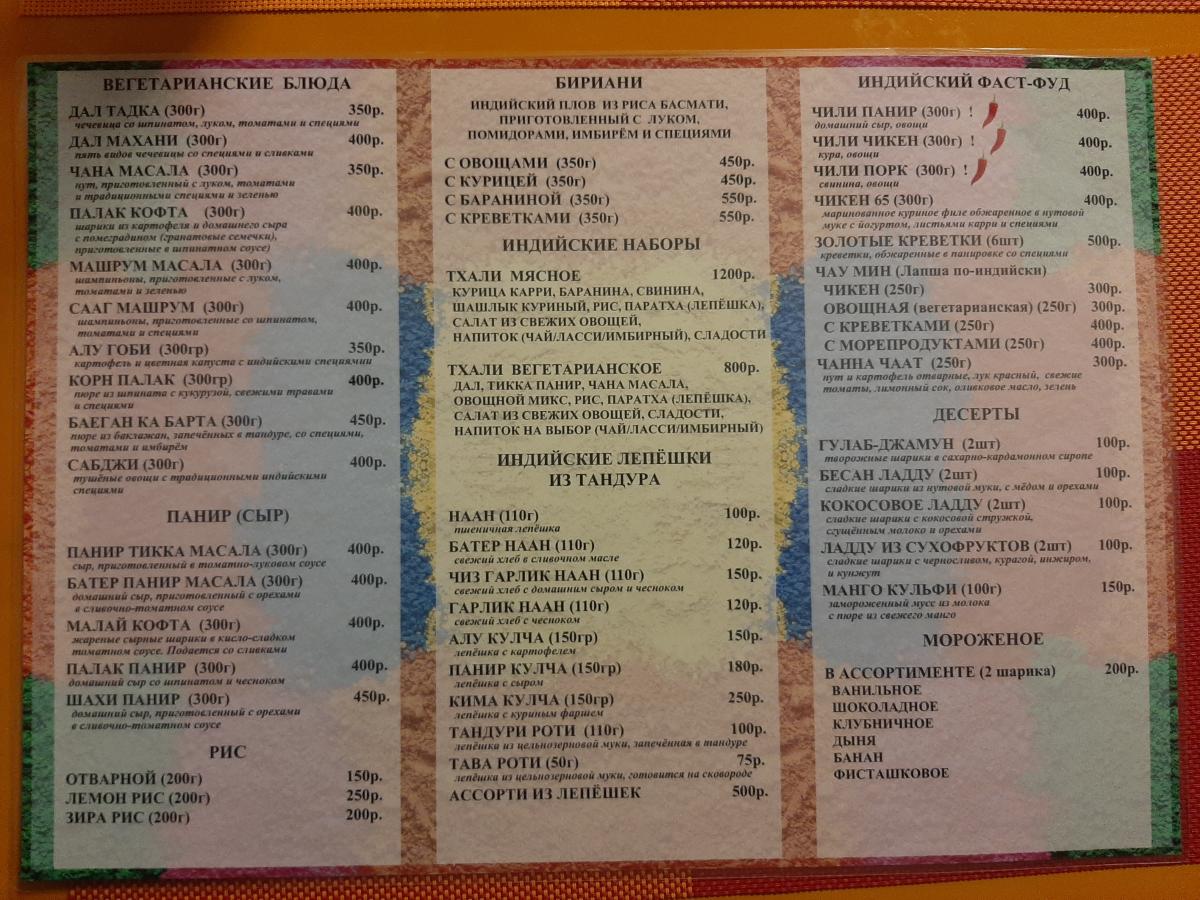 ВЕГЕТАРИАНСКИЕ БЛЮДА
ДАЛ ТАДКА (300г) 350р.
чечевица со шпинатом, луком, томатами и специями
ДАЛ МАХАНИ (300г) 400р.
пять видов чечевицы со специями и сливками
ЧАНА МАСАЛА (300г) 350р.
нут, приготовленный с луком, томатами
и традиционными специями и зеленью
ПАЛАК КОФТА (300г) 400р.
шарики из картофеля и домашнего сыра
с помеградином (гранатовые семечки),
приготовленные в шпинатном соусе)
МАШРУМ МАСАЛА (300г) 400р.
шампиньоны, приготовленные с луком,
томатами и зеленью
СААГ МАШРУМ (300г) 400р.
шампиньоны, приготовленные со шпинатом,
томатами и специями
АЛУ ГОБИ (300гр) 350р.
картофель и цветная капуста с индийскими специямии
КОРН ПАЛАК (300гр) 400р.
пюре из шпината с кукурузой, свежими травами
и специями
БАЕГАН КА БАРТА (300г) 450р.
пюре из баклажан, запечённых в тандуре, со специями,
томатами и имбирём
САБДЖИ (300г) 400р.
тушёные овощи с традиционными индийскими
специями
ПАНИР (СЫР)
ПАНИР ТИККА МАСАЛА (300г) 400р.
сыр, приготовленный в томатно-луковом соусе
БАТЕР ПАНИР МАСАЛА (300г) 400р.
домашний сыр, приготовленный с орехами
в сливочно-томатном соусе
МАЛАЙ КОФТА (300г) 400р.
жареные сырные шарики в кисло-сладком
томатном соусе. Подается со сливками
ПАЛАК ПАНИР (300г) 400р.
домашний сыр со шпинатом и чесноком
ШАХИ ПАНИР (300г) 450р.
домашний сыр, приготовленный с орехами
в сливочно-томатном соусе
РИС
ОТВАРНОЙ (200г) 150р.
ЛЕМОН РИС (200г) 250р.
ЗИРА РИС (200г) 200р.
БИРИАНИ
ИНДИЙСКИЙ ПЛОВ ИЗ РИСА БАСМАТИ,
ПРИГОТОВЛЕННЫЙ С ЛУКОМ,
ПОМИДОРАМИ, ИМБИРЁМ И СПЕЦИЯМИ
С ОВОЩАМИ (350г) 450р.
С КУРИЦЕЙ (350г) 450р.
С БАРАНИНОЙ (350г) 550р.
С КРЕВЕТКАМИ (350г) 550р.
ИНДИЙСКИЕ НАБОРЫ
ТХАЛИ МЯСНОЕ 1200р.
КУРИЦА КАРРИ, БАРАНИНА, СВИНИНА,
ШАШЛЫК КУРИНЫЙ, РИС, ПАРАТХА (ЛЕПЁШКА),
САЛАТ ИЗ СВЕЖИХ ОВОЩЕЙ,
НАПИТОК (ЧАЙ/ЛАССИ/ИМБИРНЫЙ), СЛАДОСТИ
ТХАЛИ ВЕГЕТАРИАНСКОЕ 800р.
ДАЛ, ТИККА ПАНИР, ЧАНА МАСАЛА,
ОВОЩНОЙ МИКС, РИС, ПАРАТХА (ЛЕПЁШКА),
САЛАТ ИЗ СВЕЖИХ ОВОЩЕЙ, СЛАДОСТИ,
НАПИТОК НА ВЫБОР (ЧАЙ/ЛАССИ/ИМБИРНЫЙ)
ИНДИЙСКИЕ ЛЕПЁШКИ
ИЗ ТАНДУРА
НААН (110г) 100р.
пшеничная лепёшка
БАТЕР НААН (110г) 120р.
свежий хлеб в сливочном масле
ЧИЗ ГАРЛИК НААН (110г) 150р.
свежий хлеб с домашним сыром и чесноком
ГАРЛИК НААН (110г) 120р.
свежий хлеб с чесноком
АЛУ КУЛЧА (150гр) 150р.
лепёшка с картофелем
ПАНИР КУЛЧА (150гр) 180р.
лепёшка с сыром
КИМА КУЛЧА (150гр) 250р.
лепёшка с куриным фаршем
ТАНДУРИ РОТИ (110г) 100р.
лепёшка из цельнозерновой муки, запечённая в тандуре
ТАВА РОТИ (50г) 75р.
лепёшка из цельнозерновой муки, готовится на сковороде
АССОРТИ ИЗ ЛЕПЁШЕК 500р.
ИНДИЙСКИЙ ФАСТ-ФУД
ЧИЛИ ПАНИР (300г) ! 400р.
домашний сыр, овощи
ЧИЛИ ЧИКЕН (300г) ! 400р.
кура, овощи
ЧИЛИ ПОРК (300г) ! 400р.
свинина, овощи
ЧИКЕН 65 (300г) 400р.
маринованное куриное филе обжаренное в нутовой
муке с йогуртом, листьями карри и специями
ЗОЛОТЫЕ КРЕВЕТКИ (6шт) 500р.
креветки, обжаренные в панировке со специями
ЧАУ МИН (Лапша по-индийски)
ЧИКЕН (250г) 300р.
ОВОЩНАЯ (вегетарианская) (250г) 300р.
С КРЕВЕТКАМИ (250г) 400р.
С МОРЕПРОДУКТАМИ (250г) 400р.
ЧАННА ЧААТ (250г) 300р.
нут и картофель отварные, лук красный, свежие
томаты, лимонный сок, оливковое масло, зелень
ДЕСЕРТЫ
ГУЛАБ-ДЖАМУН (2шт) 100р.
творожные шарики в сахарно-кардамонном сиропе
БЕСАН ЛАДДУ (2шт) 100р.
сладкие шарики из нутовой муки, с мёдом и орехами
КОКОСОВОЕ ЛАДДУ (2шт) 100р.
сладкие шарики с кокосовой стружкой,
сгущённым молоко и орехами
ЛАДДУ ИЗ СУХОФРУКТОВ (2шт) 100р.
сладкие шарики с черносливом, курагой, инжиром,
и кунжут
МАНГО КУЛЬФИ (100г) 150р.
замороженный мусс из молока
с пюре из свежего манго
МОРОЖЕНОЕ
В АССОРТИМЕНТЕ (2 шарика) 200р.
ВАНИЛЬНОЕ
ШОКОЛАДНОЕ
КЛУБНИЧНОЕ
ДЫНЯ
БАНАН
ФИСТАШКОВОЕ